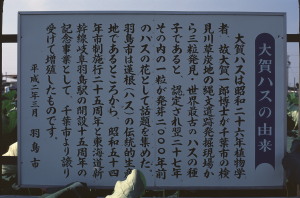 大賀ハスの由来
大賀ハスは昭和二十六年植物学
者、故大賀一郎博士が千葉市の検
見川草炭地の縄文遺跡発掘現場か
ら三粒発見、世界最古のハスの種
子であると、認定され翌二十七年
その内の一粒が発芽二〇〇〇年前
のハスの花として話題を集めた。
羽島市は蓮根(ハス)の伝統的生産
地であるところから、昭和五十四
年市制施行二十五周年と東海道新
幹線岐阜羽島駅の開設十五周年の
記念事業として、千葉市より譲り
受けて増殖したものです。
平成二年三月 羽島市